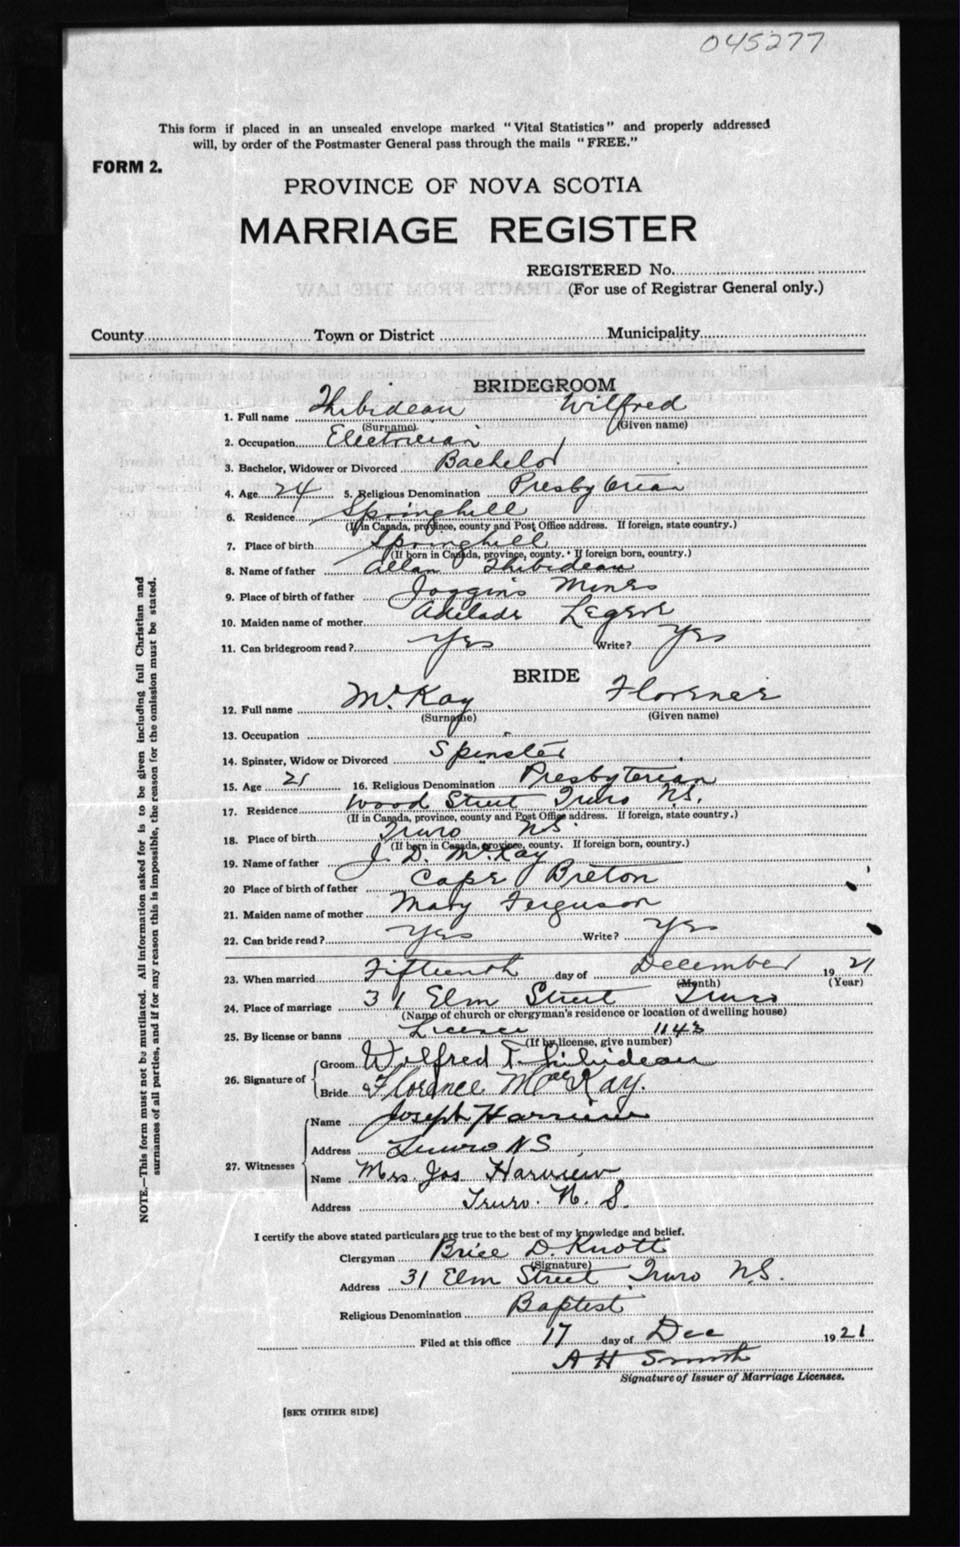 045277
This form if placed in an unsealed envelope marked "Vital Statistics" and properly addressed
will, by order of the Postmaster General pass through the mails "FREE."
FORM 2.
PROVINCE OF NOVA SCOTIA
MARRIAGE REGISTER
REGISTERED No.
(For use of Registrar General only.)
County Town or District Municipality
BRIDEGROOM
1. Full name Thibideau Wilfred
(Surname) (Given name)
2. Occupation Electrician
3. Bachelor, Widower or Divorced Bachelor
4. Age 24 5. Religious Denomination Presbyterian
6. Residence Springhill
(If in Canada, province, county and Post Office address. If foreign, state country.)
7. Place of birth Springhill
(If born in Canada, province, county. If foreign born, country.)
8. Name of father Allan Thibideau
9. Place of birth of father Joggins Mines
10. Maiden name of mother Adelade Legere
11. Can bridegroom read? Yes Write? Yes
BRIDE
12. Full name McKay Florence
(Surname) (Given name)
13. Occupation
14. Spinster, Widow or Divorced Spinster
15. Age 21 16. Religious Denomination Presbyterian
17. Residence Wood Street Truro N.S.
(If in Canada, province, county and Post Office address. If foreign, state country.)
18. Place of birth Truro N.S.
(If born in Canada, province, county. If foreign born, country.)
19. Name of father J. D. McKay
20 Place of birth of father Cape Breton
21. Maiden name of mother Mary Ferguson
22. Can bride read? Yes Write? Yes
23. When married Fifteenth day of December 1921
(Month) (Year)
24. Place of marriage 31 Elm Street Truro
(Name of church or clergyman's residence or location of dwelling house)
25. By license or banns Licence 1143
(If by license, give number)
26. Signature of Groom Wilfred T. Thibideau
Bride Florence MacKay.
27. Witnesses Name Joseph
Address Truro N S
Name Mrs. Jos
Address Truro. N. S.
I certify the above stated particulars are true to the best of my knowledge and belief.
Clergyman Brice D. Knott
(Signature)
Address 31 Elm Street Truro N.S.
Religious Denomination Baptist
Filed at this office 17 day of Dec 1921
A H Smith
Signature of Issuer of Marriage Licenses.
[SEE OTHER SIDE]
NOTE.—This form must not be mutilated. All information asked for is to be given including full Christian and
surnames of all parties, and if for any reason this is impossible, the reason for the omission must be stated.